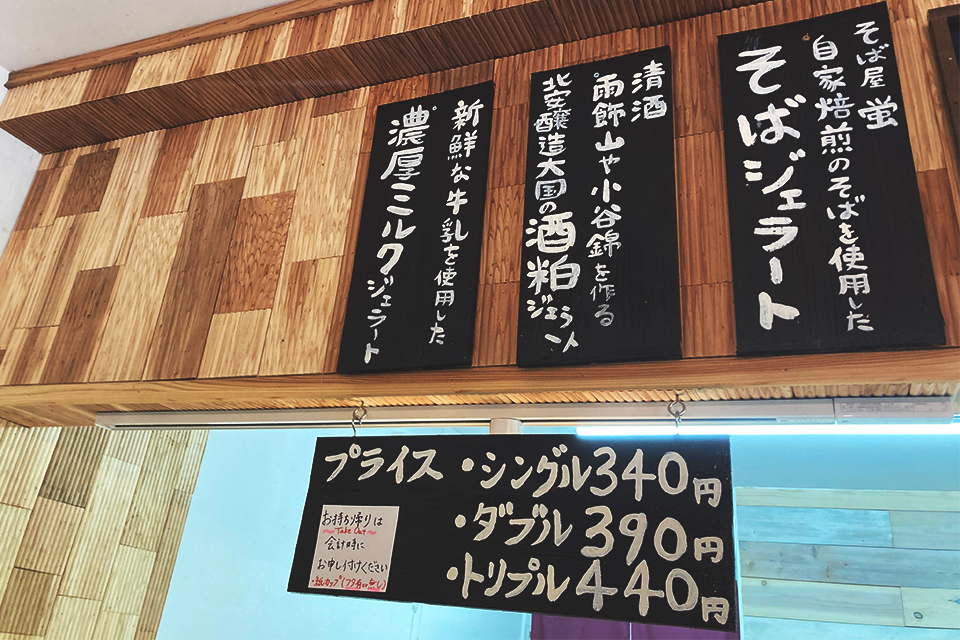 そば屋 蛍
自家焙煎のそばを使用した
そばジェラート
清酒
雨飾山や小谷錦を作る
北安醸造大国の酒粕ジェラート
新鮮な牛乳を使用した
濃厚ミルクジェラート
プライス・シングル340円
・ダブル390円
・トリプル440円
お持ち帰りは
Take Out
会計時に
お申し付けください